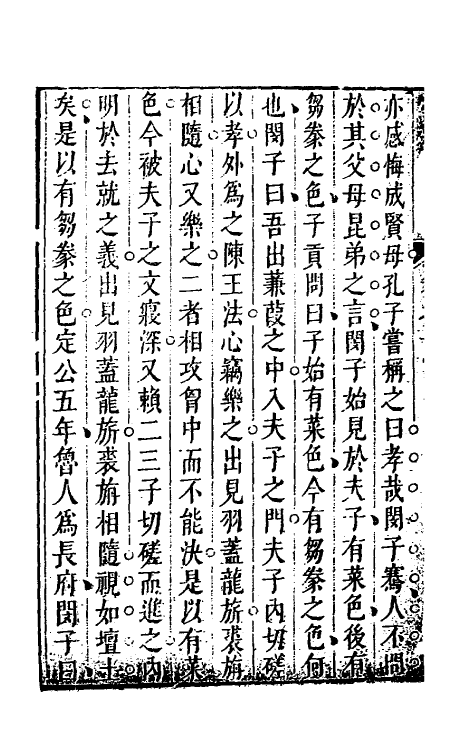 亦感悔成賢母孔子嘗稱之曰孝哉閔子騫人不間
於其父母昆弟之言閔子始見於夫子有菜色後有
芻豢之色子貢問曰子始有菜色今有芻豢之色何
也閔子曰吾出蒹葭之中入夫子之門夫子內切磋
以孝外爲之陳王法心竊樂之出見羽蓋龍旂裘旃
相隨心又樂之二者相攻胷中而不能決是以有菜
色今被夫子之文寖深又賴二三子切磋而進之內
明於去就之義出見羽蓋龍旂裘旃相隨視如壇土
矣是以有芻豢之色定公五年魯人爲長府閔子曰